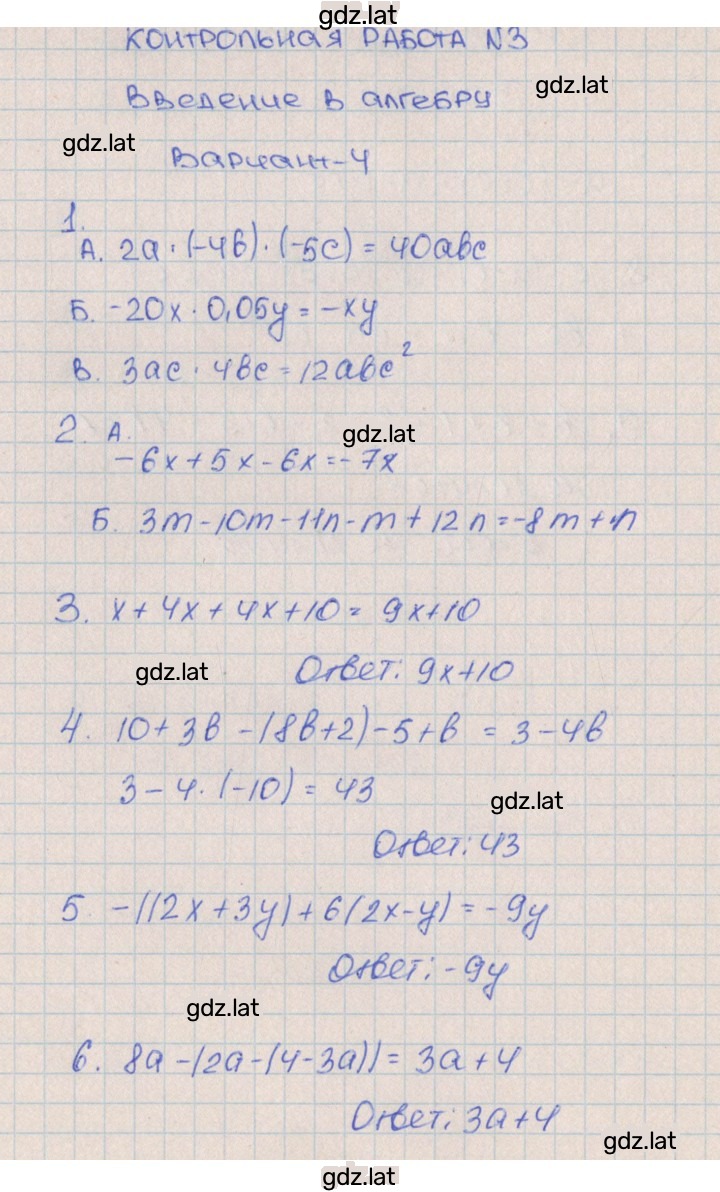 gdz.lat
КОНТРОЛЬНАЯ РАБОТА N3
gdz.lat
Введение в алгебру
gdz.lat
Вариант-4
1.
А. 2a · (-4b) · (-5c) = 40abc
Б. -20x · 0,05y = -xy
В. 3ac · 4bc = 12abc²
2. А.
gdz.lat
-6x + 5x - 6x = -7x
Б. 3m - 10m - 11n - m + 12n = -8m + n
3. x + 4x + 4x + 10 = 9x + 10
gdz.lat
Ответ: 9x+10
4. 10 + 3b - (8b+2) - 5 + b = 3 - 4b
3 - 4 · (-10) = 43
gdz.lat
Ответ: 43
5 -((2x + 3y) + 6(2x - y) = -9y
Ответ: -9y
gdz.lat
6. 8a - (2a - (4 - 3a)) = 3a + 4
Ответ: 3a+4
gdz.lat
gdz.lat